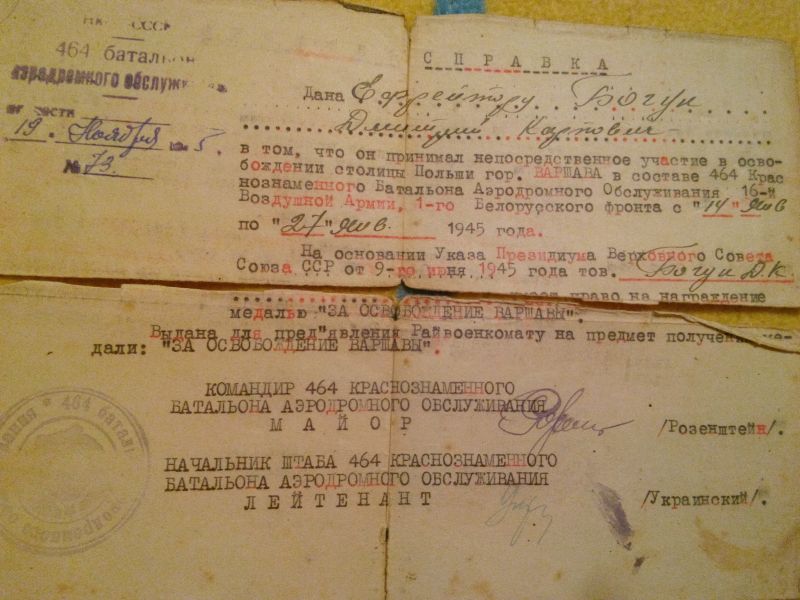 НК СССР
464 батальон
аэродромного обслужив
19 Ноября 5.
№ 73.
СПРАВКА
Дана Ефрейтору Богун
Дмитрий Карпович
в том, что он принимал непосредственное участие в осво-
бождении столицы Польши гор. ВАРШАВА в составе 464 Крас
нознаменного Батальона Аэродромного Обслуживания 16-й
Воздушной Армии, 1-го Белорусского фронта с "14" Янв
по "27" Янв. 1945 года.
На основании Указа Президиума Верховного Совета
Союза ССР от 9-го июня 1945 года тов. Богун Д.К.
имеет право на награждение
медалью "ЗА ОСВОБОЖДЕНИЕ ВАРШАВЫ".
Выдана для пред"явления Райвоенкомату на предмет получения ме-
дали: "ЗА ОСВОБОЖДЕНИЕ ВАРШАВЫ".
КОМАНДИР 464 КРАСНОЗНАМЕННОГО
БАТАЛЬОНА АЭРОДРОМНОГО ОБСЛУЖИВАНИЯ
МАЙОР /Розенштейн/.
НАЧАЛЬНИК ШТАБА 464 КРАСНОЗНАМЕННОГО
БАТАЛЬОНА АЭРОДРОМНОГО ОБСЛУЖИВАНИЯ
ЛЕЙТЕНАНТ /Украинский/.
464 батал